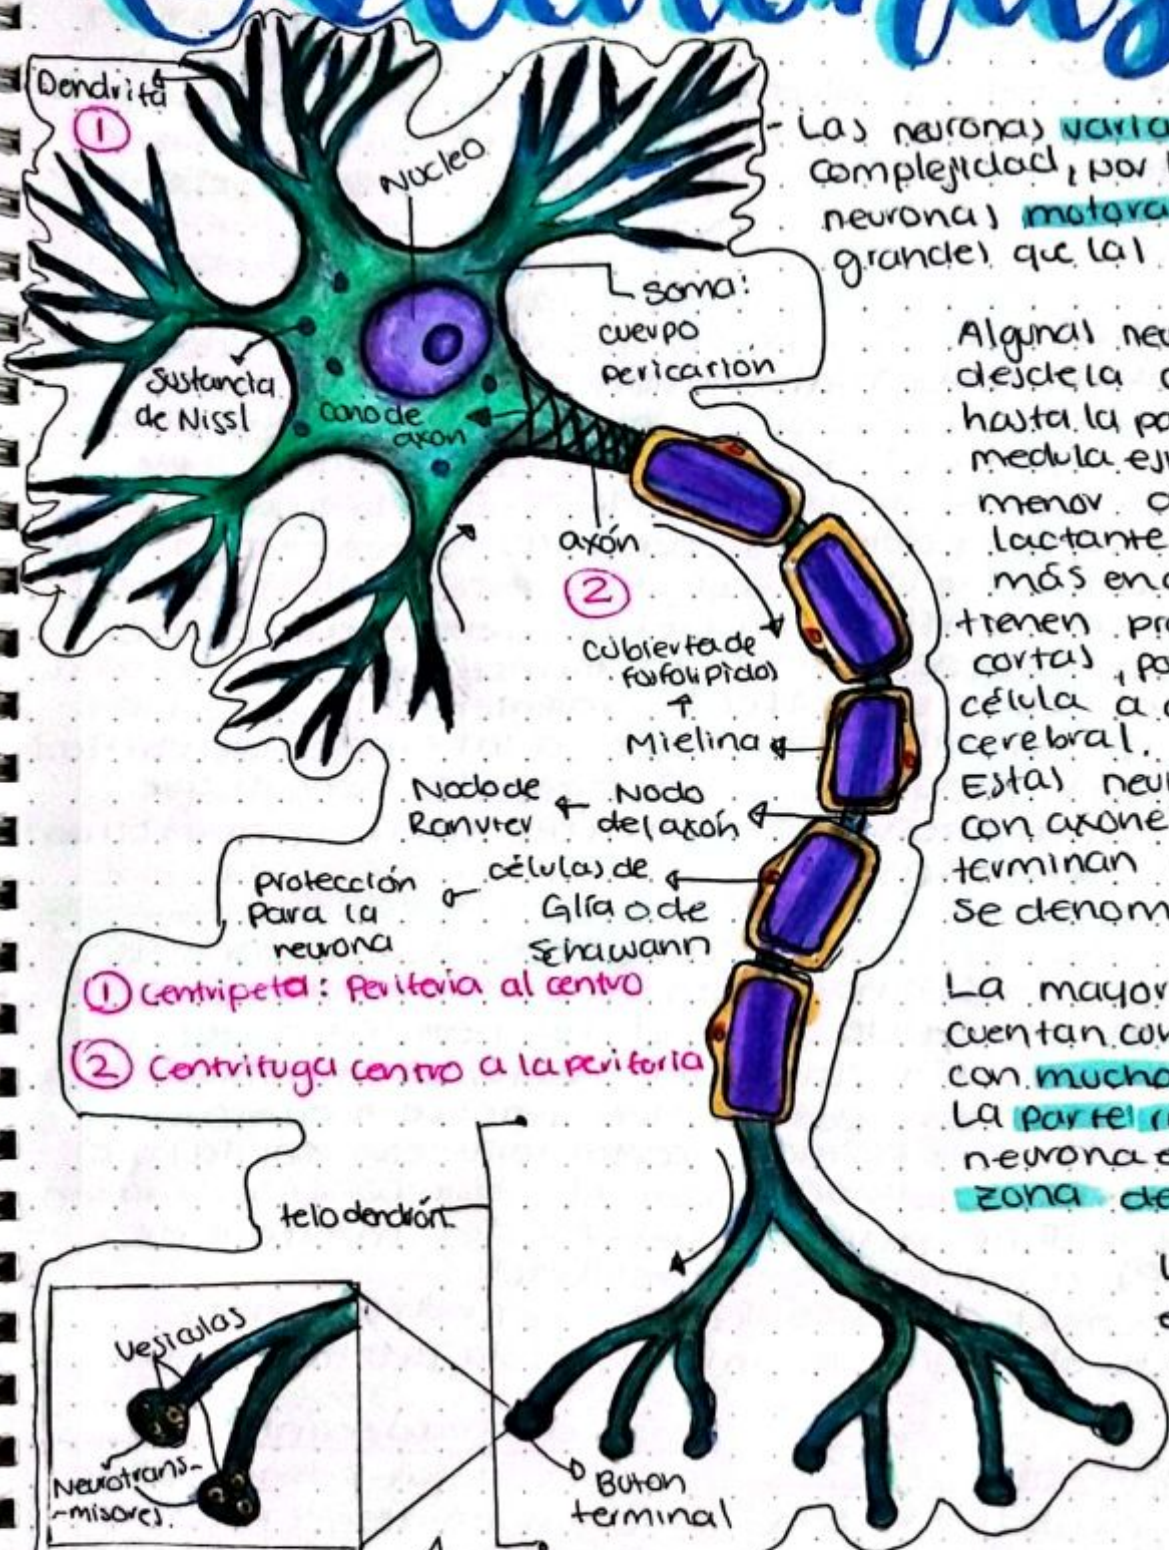 Dendrita
1
Nucleo
Soma:
cuerpo
pericarion
Sustancia
de Nissl
cono de
axon
axón
2
Cubierta de
fosfolipidos
Mielina
Nodo de
Ranvier
Nodo
del axón
células de
Glia o de
Schawann
Protección
Para la
neurona
1 Centripeta: Periferia al centro
2 Centrifuga centro a la periferia
telodendrón
Vesiculas
Neurotrans-
-misores.
Buton
terminal
- Las neuronas varia
complejidad, por l
neuronas motora
grandes que las
Algunas neu
desde la c
hasta la pa
medula
menor c
lactante
más en
tienen pr
cortas, pa
célula a
cerebral.
Estas neu
con axone
terminan
se denom
La mayor
cuentan con
con mucha
La parte r
neurona e
zona de